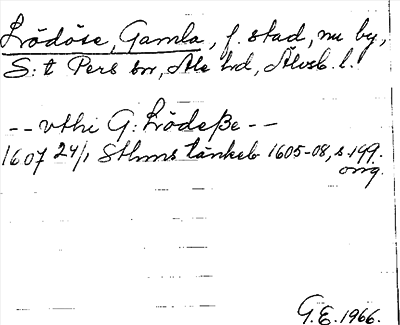 Lödöse, Gamla, f. stad, nu by,
S:t Pers sn, Ale hd, Älvsb. l.
-- vthi G: Lödeße --
1607 24/1 Sthms tänkeb 1605-08, s 199.
orig.
G.E. 1966.